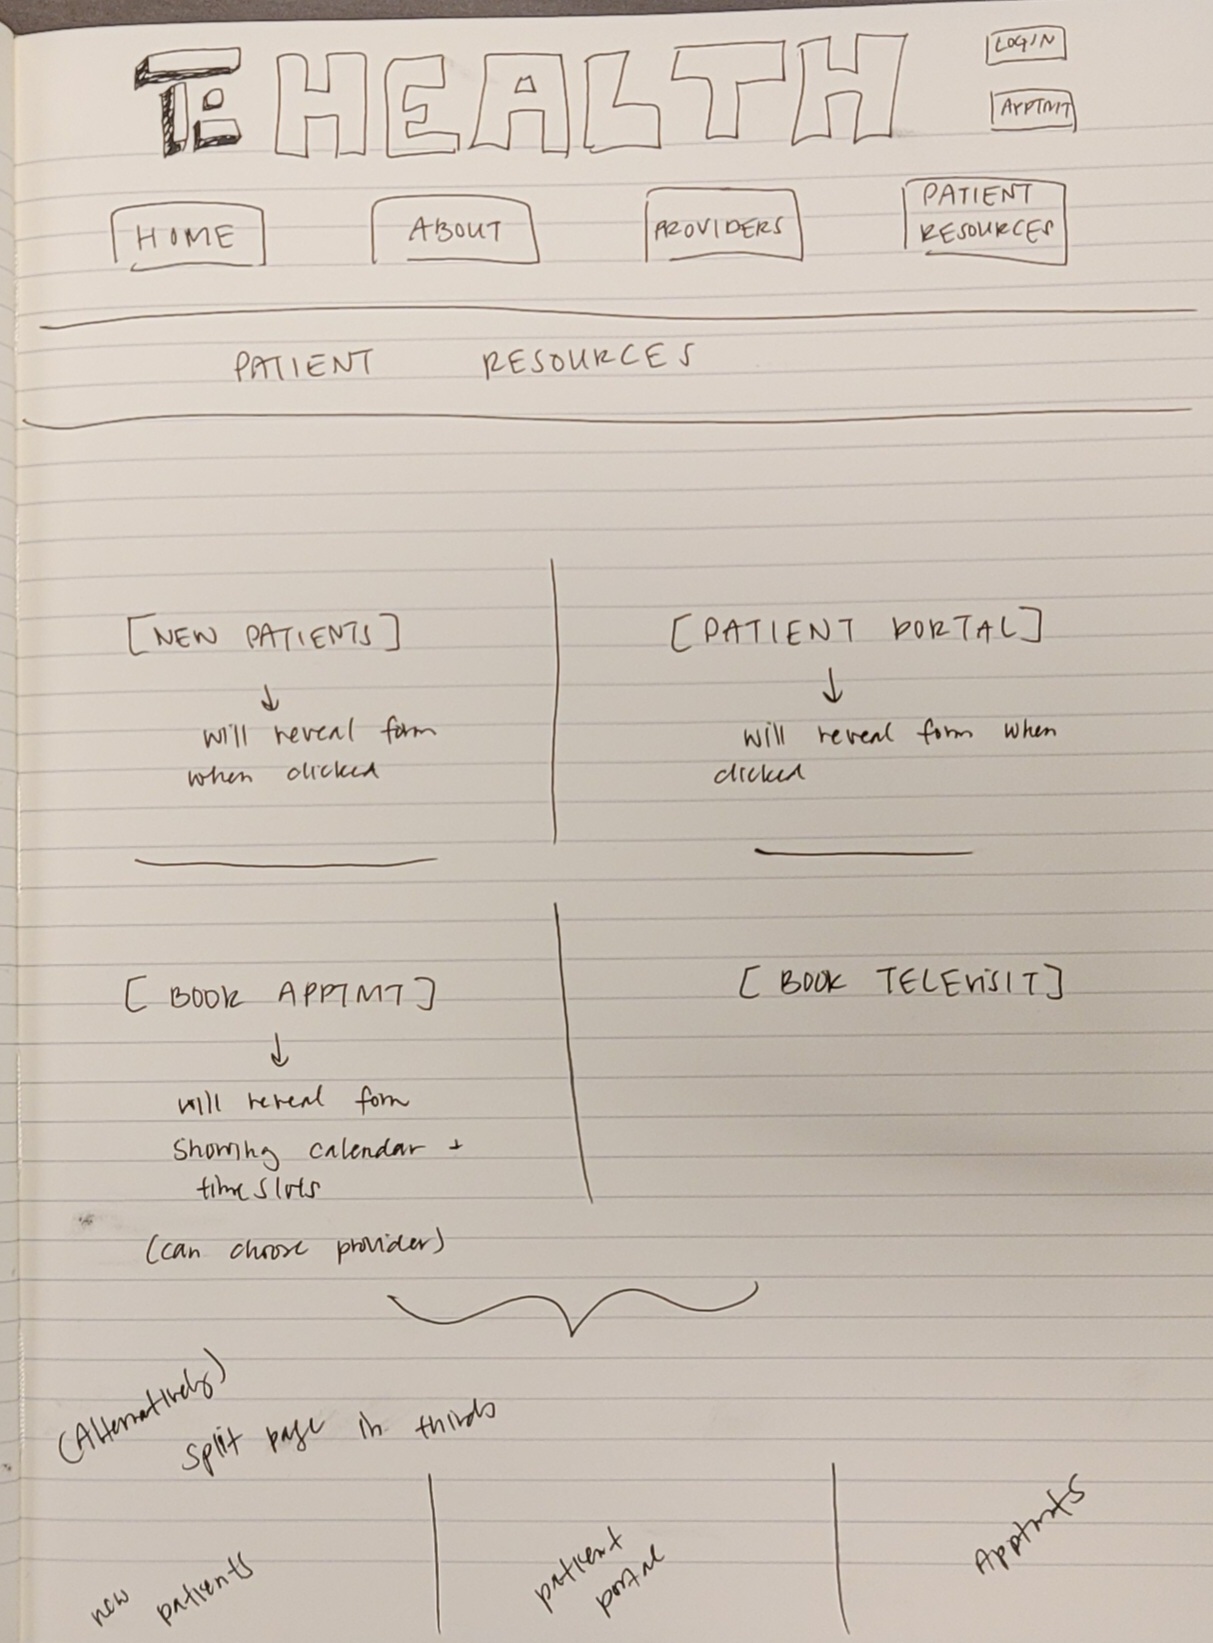 TE HEALTH
LOGIN
APPTMT
HOME
ABOUT
PROVIDERS
PATIENT
RESOURCES
PATIENT RESOURCES
[NEW PATIENTS]
↓
will reveal form
when clicked
[PATIENT PORTAL]
↓
will reveal form when
clicked
[BOOK APPTMT]
↓
will reveal form
showing calendar +
time slots
(can choose provider)
[BOOK TELEVISIT]
(Alternatively)
split page in thirds
new patients
patient
portal
Apptmts